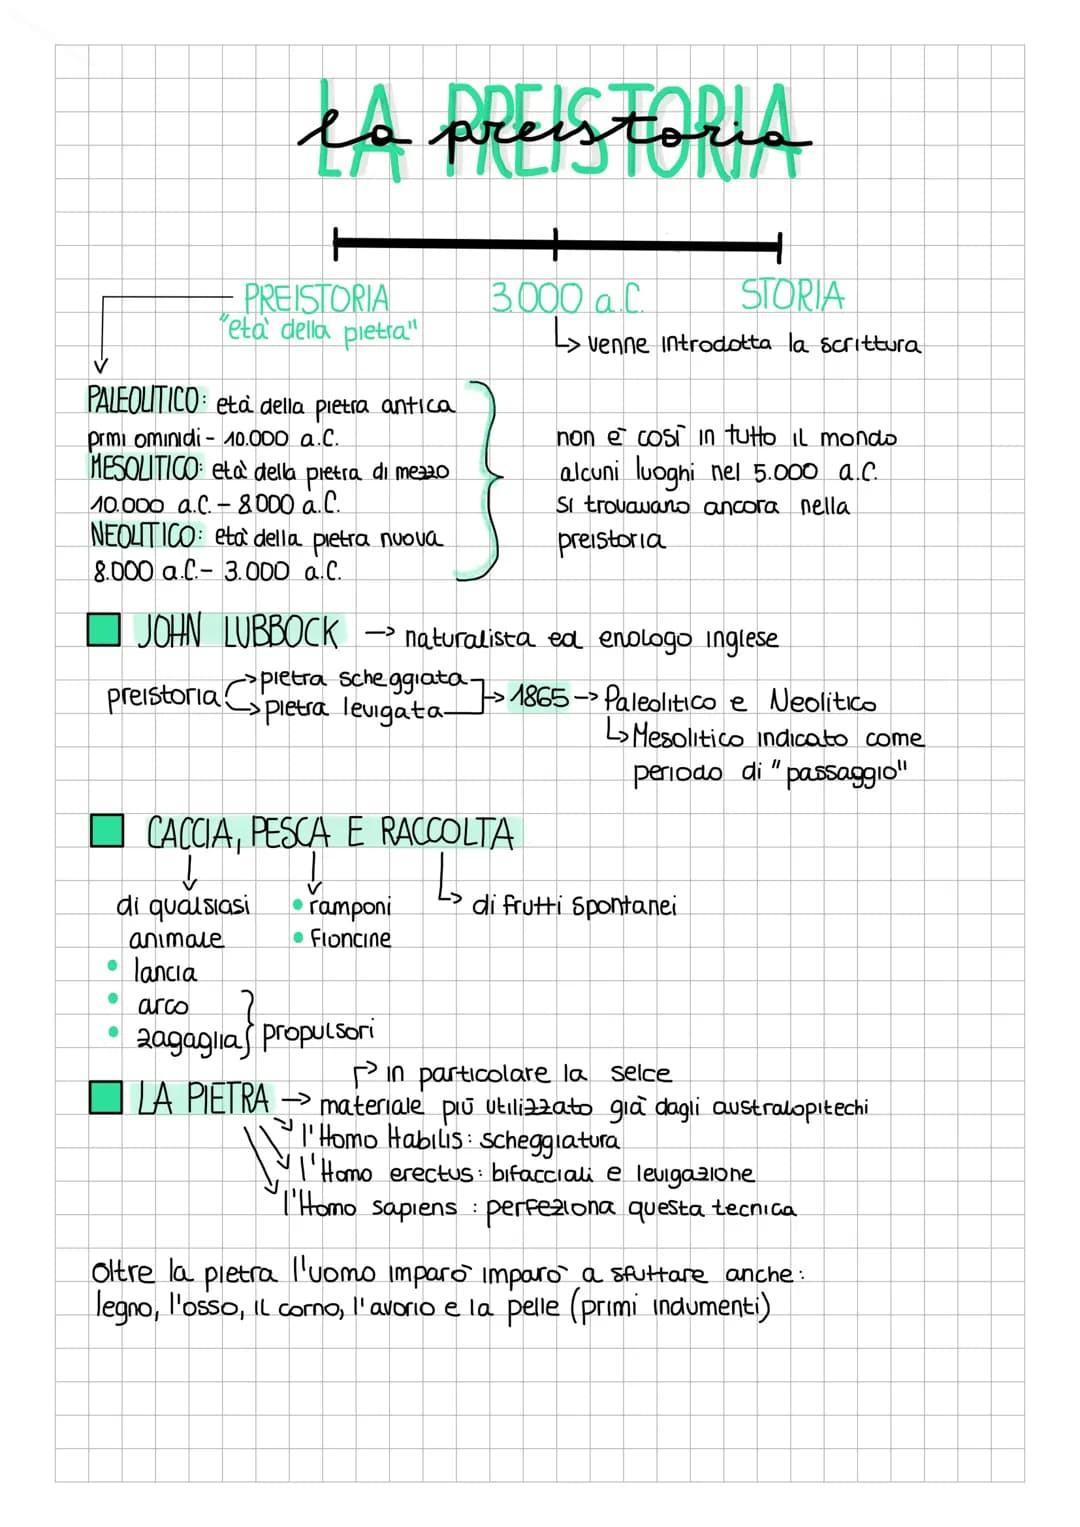 LA PREISTORIA
la preistoria
PREISTORIA 3.000 a.C. STORIA
"età della pietra"
venne introdotta la scrittura
PALEOLITICO: età della pietra antica
prmi ominidi - 10.000 a.C.
MESOLITICO: età della pietra di mezzo
10.000 a.C. - 8.000 a.C.
NEOLITICO: età della pietra nuova
8.000 a.C. - 3.000 a.C.
non è così in tutto il mondo
alcuni luoghi nel 5.000 a.C.
si trovavano ancora nella
preistoria
JOHN LUBBOCK → naturalista ed enologo inglese
preistoria → pietra scheggiata → 1865 → Paleolitico e Neolitico
→ pietra levigata
↳ Mesolitico indicato come
periodo di "passaggio"
CACCIA, PESCA E RACCOLTA
di qualsiasi
animale
• lancia
• arco
• zagaglia } propulsori
• ramponi
• fioncine
↳ di frutti spontanei
in particolare la selce
LA PIETRA → materiale più utilizzato già dagli australopitechi
l'Homo Habilis: scheggiatura
l'Homo erectus: bifacciali e levigazione
l'Homo sapiens : perfeziona questa tecnica
oltre la pietra l'uomo imparò imparò a sfuttare anche:
legno, l'osso, il corno, l'avorio e la pelle (primi indumenti)